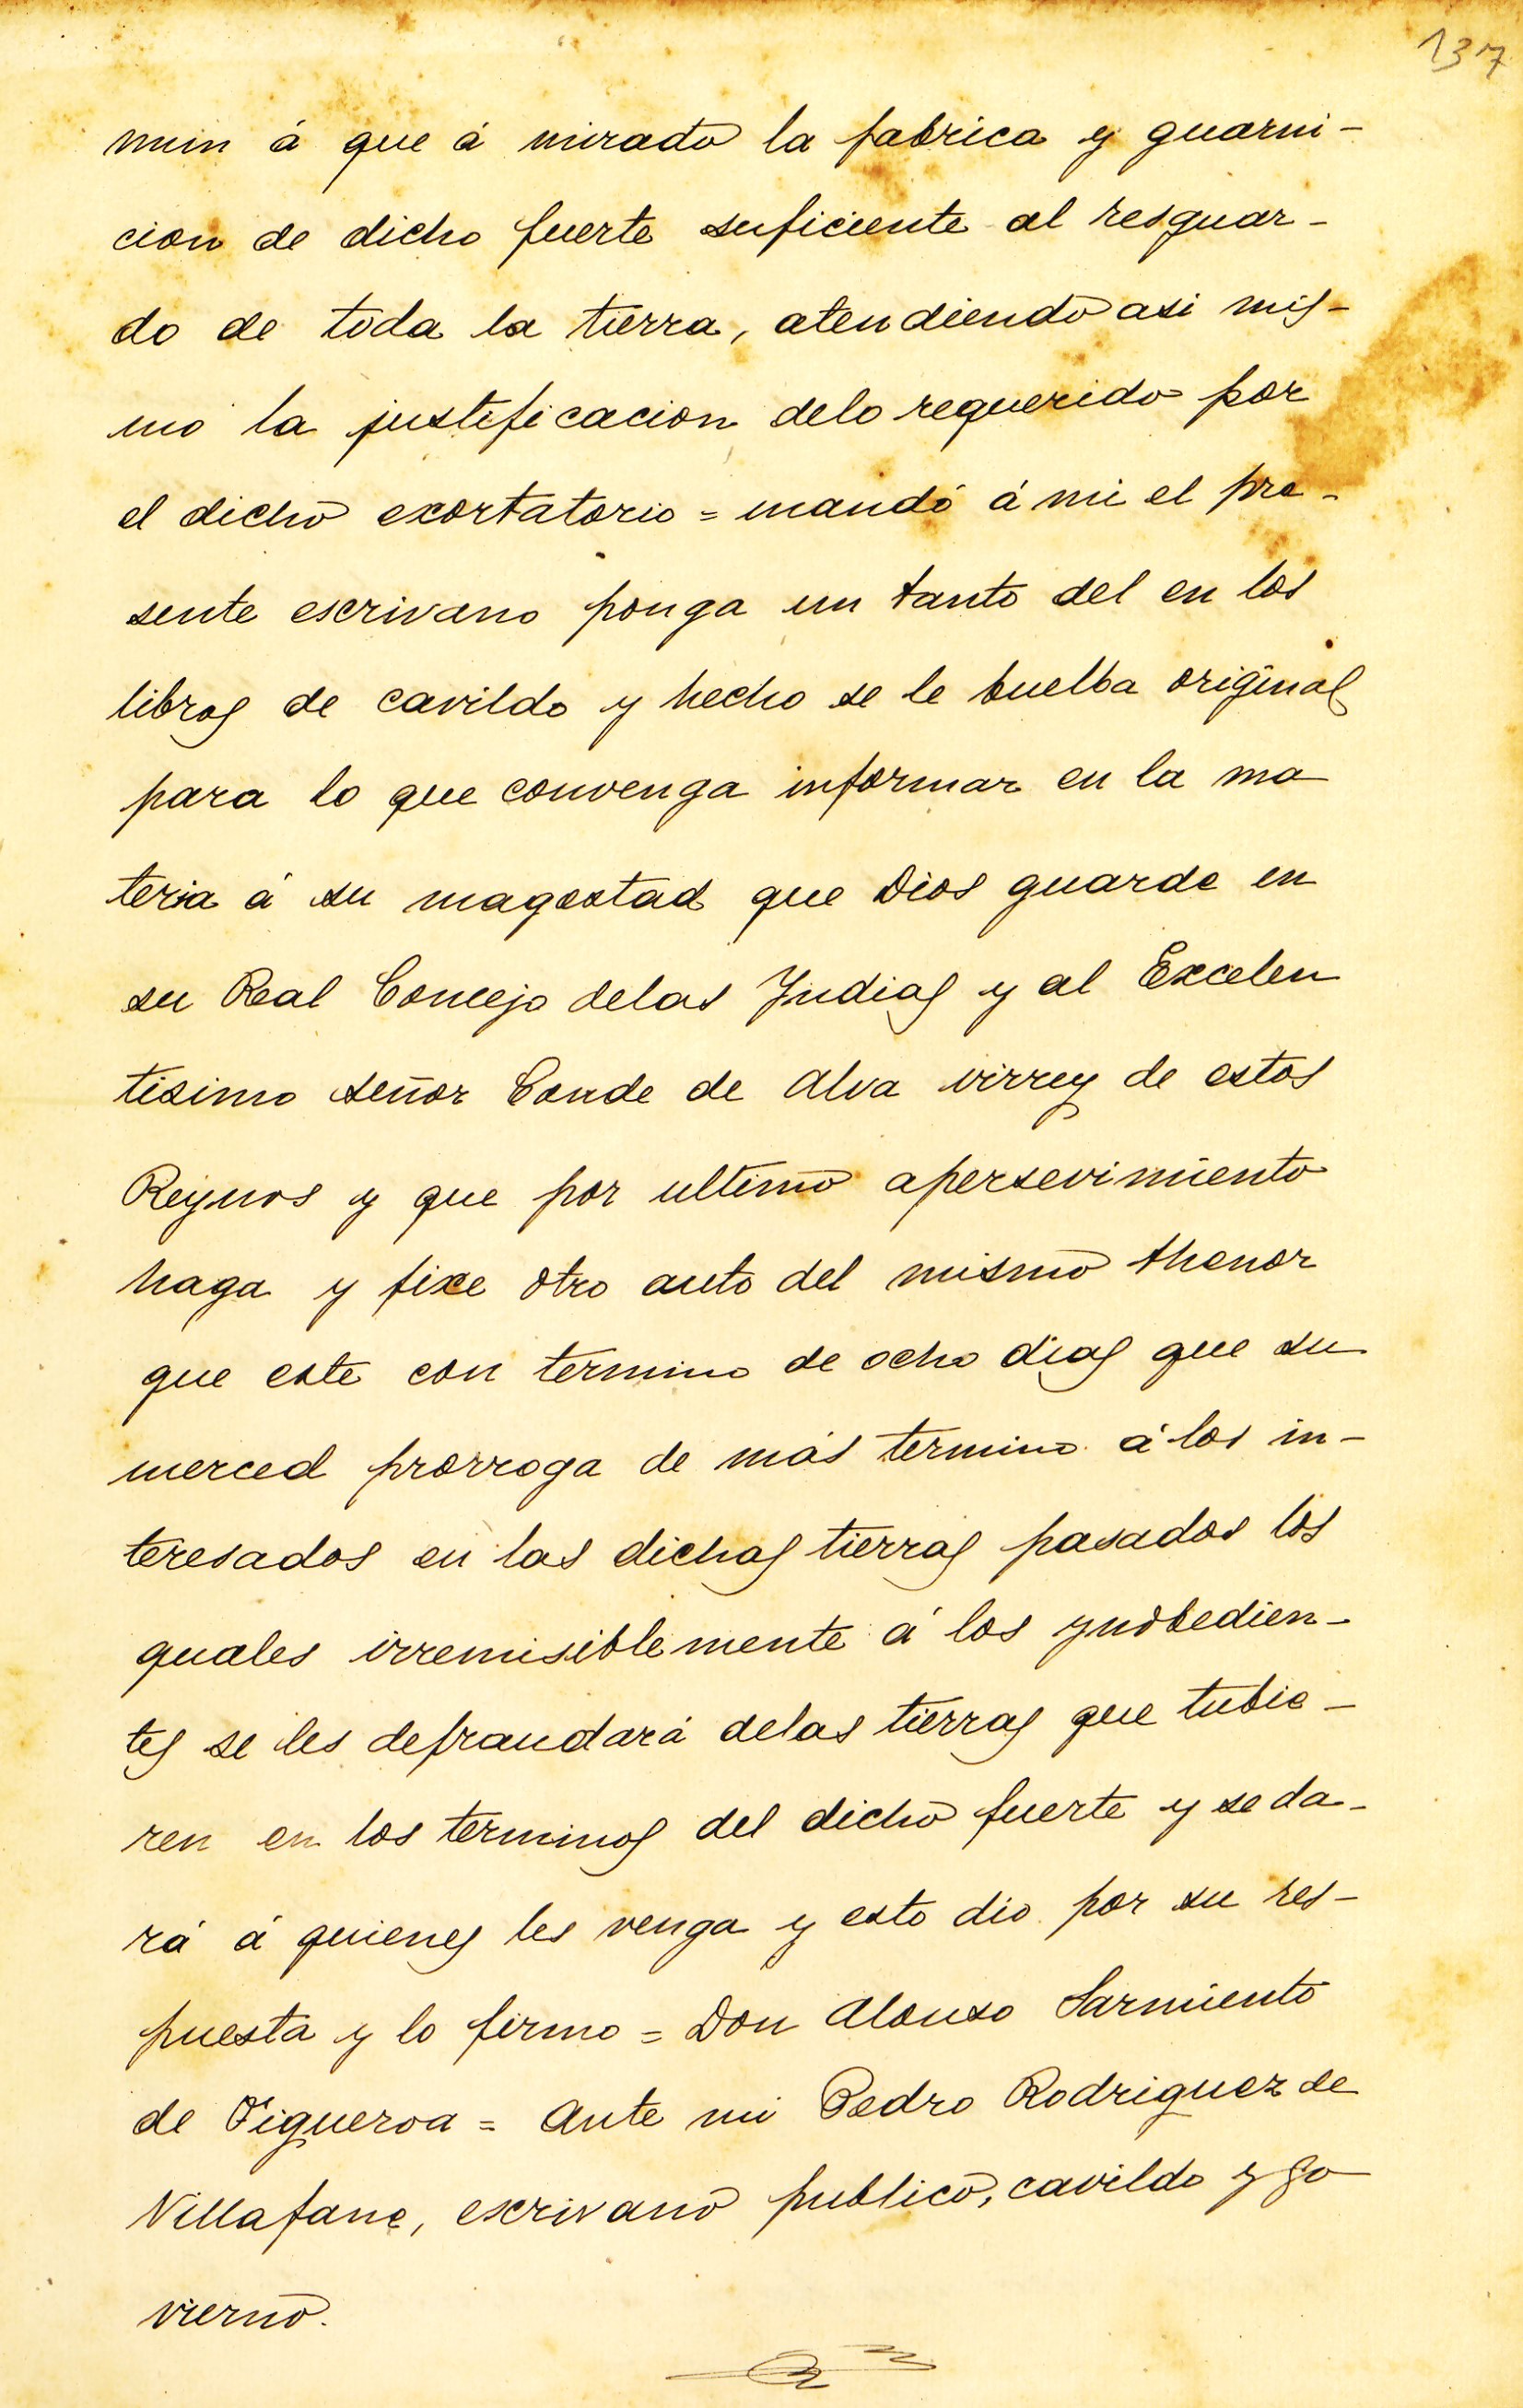 137
mun á que á mirado la fabrica y guarni-
cion de dicho fuerte suficiente al resguar-
do de toda la tierra, atendiendo asi mis-
mo la justificacion delo requerido por
el dicho exortatorio = mandó á mi el pre-
sente escrivano ponga un tanto del en los
libros de cavildo y hecho se le buelba original
para lo que convenga informar en la ma
teria á su magestad que Dios guarde en
su Real Concejo delas Yndias y al Excelen
tisimo señor Conde de Alva virrey de estos
Reynos y que por ultimo apersevimiento
haga y fixe otro auto del mismo thenor
que este con termino de ocho dias que su
merced prorroga de más termino á los in-
teresados en las dichas tierras pasados los
quales irremisiblemente á los ynobedien-
tes se les defraudará delas tierras que tubie-
ren en los terminos del dicho fuerte y se da-
rá á quienes les venga y esto dio por su res-
puesta y lo firmo = Don Alonso Sarmiento
de Figueroa = Ante mi Pedro Rodriguez de
Villafane, escrivano publico, cavildo y go
vierno.